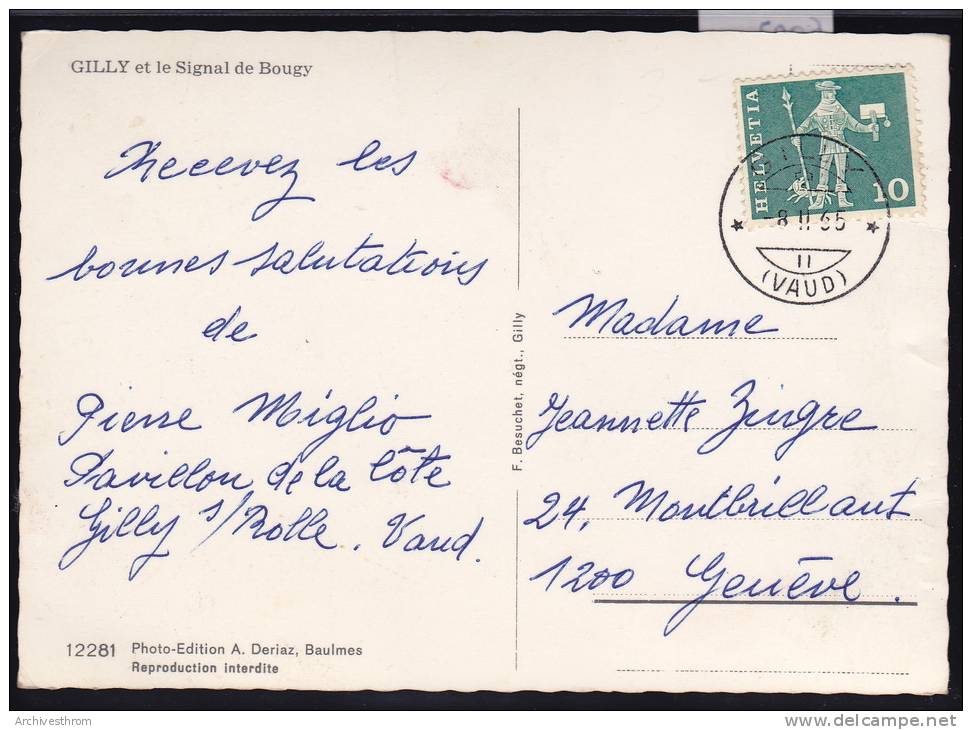 GILLY et le Signal de Bougy
Recevez les
bonnes salutations
de
Pierre Miglio
Pavillon de la Côte
Gilly s/Rolle. Vaud.
12281 Photo-Edition A. Deriaz, Baulmes
Reproduction interdite
F. Besuchet, négt., Gilly
HELVETIA
10
GILLY
-8 II 65
11
(VAUD)
Madame
Jeannette Zingre
24, Montbrillant
1200 Genève.
Archivesthrom
www.delcampe.net